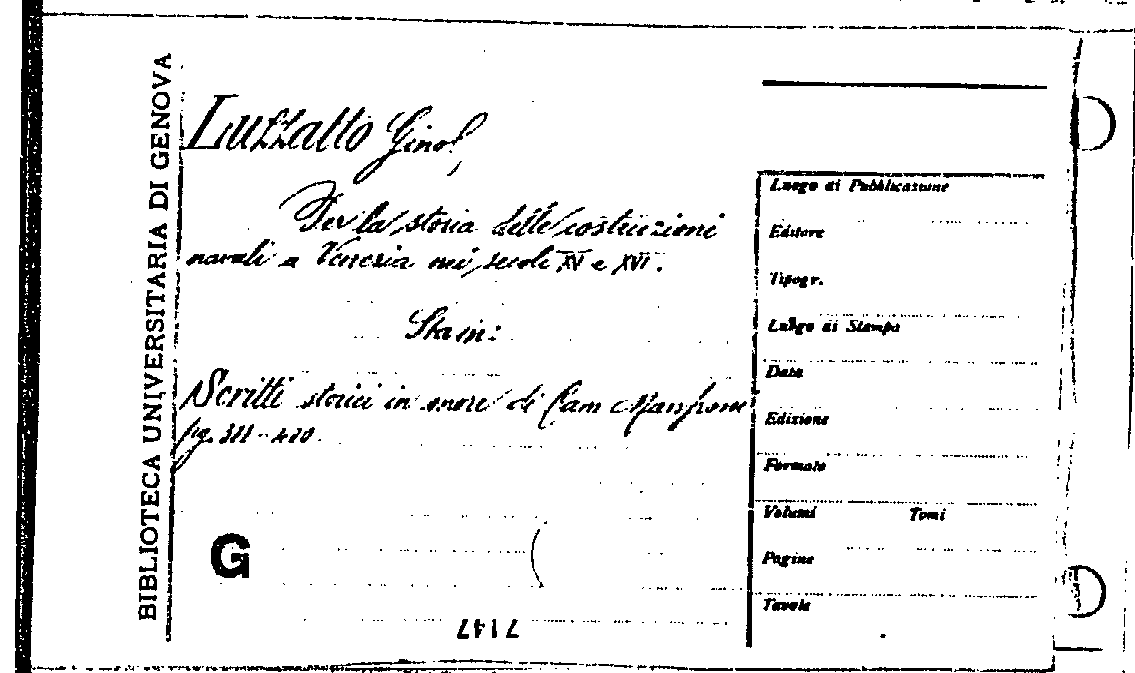 BIBLIOTECA UNIVERSITARIA DI GENOVA
Luzzatto Gino,
Per la storia delle costruzioni
navali a Venezia nei secoli XV e XVI.
Sta in:
Scritti storici in onore di Cam Manfroni
pg.
G
7147
Luogo di Pubblicazione
Editore
Tipogr.
Luogo di Stampa
Data
Edizione
Formato
Volumi Tomi
Pagine
Tavole